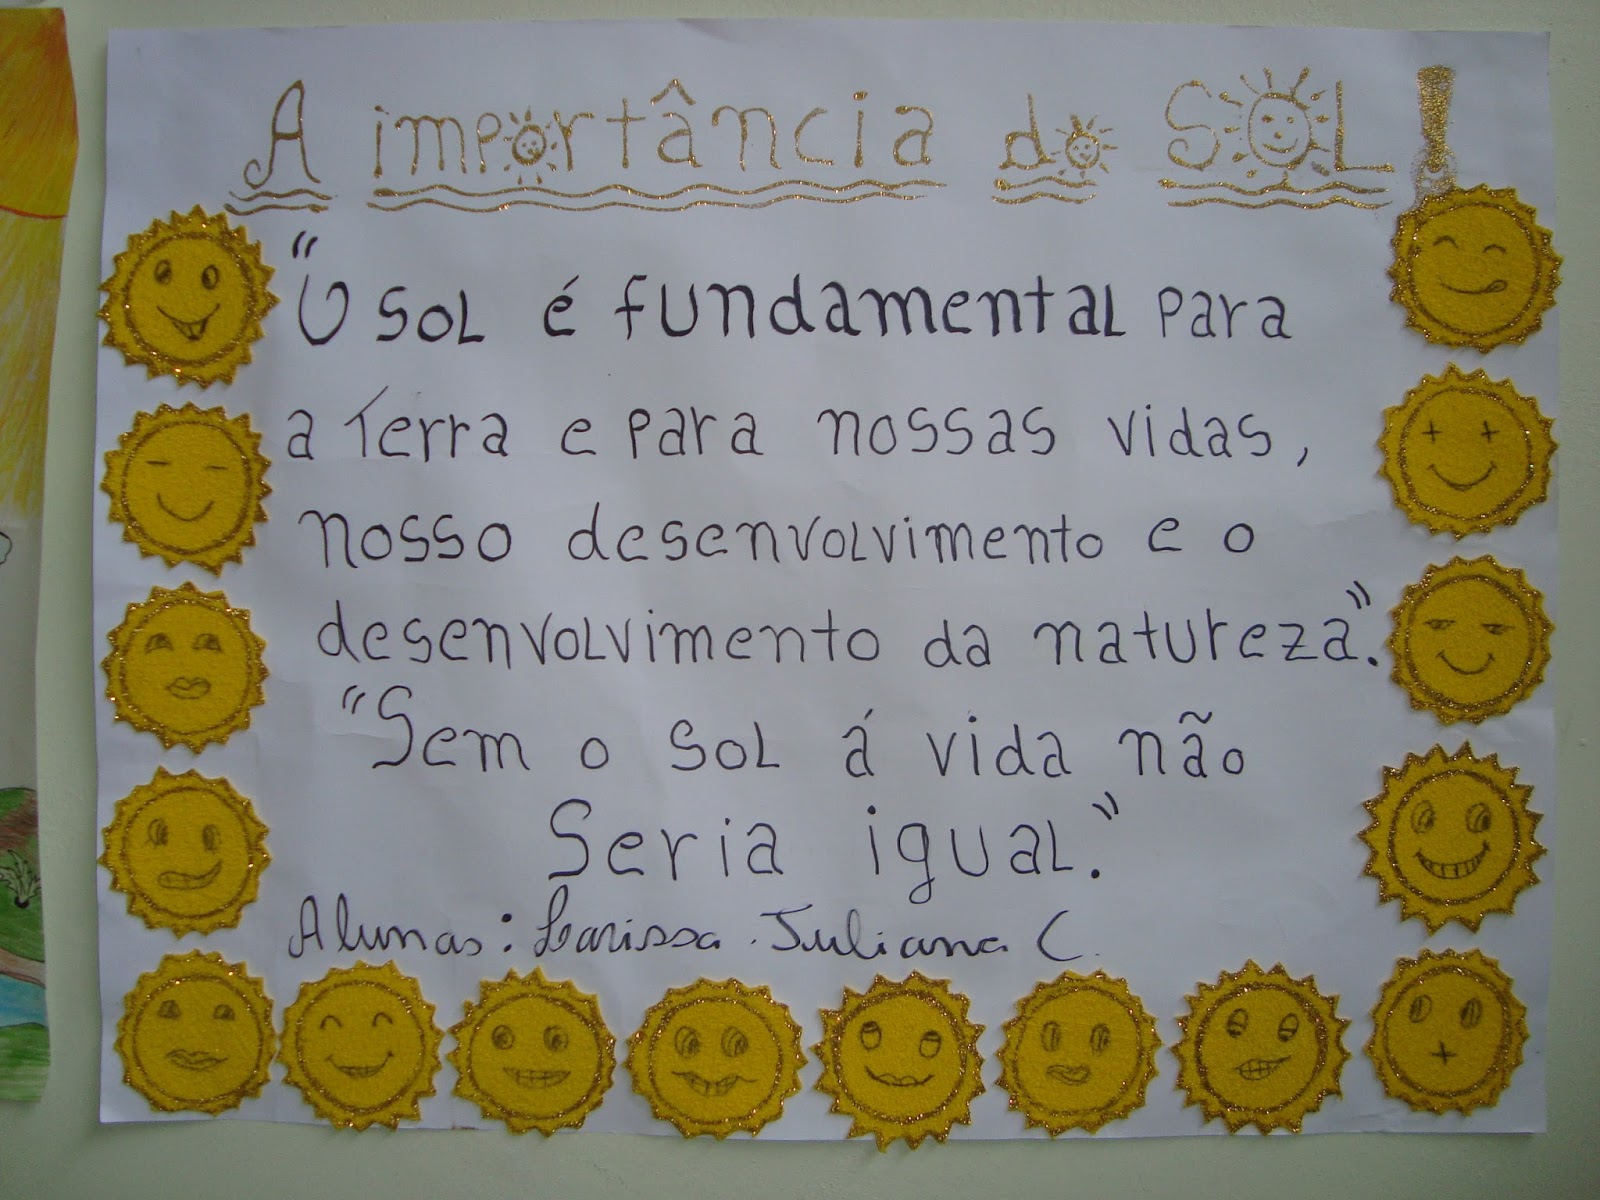 A importância do SOL!
"O SOL é fundamental para
a Terra e para nossas vidas,
nosso desenvolvimento e o
desenvolvimento da natureza".
"Sem o sol á vida não
Seria igual."
Alunas: Larissa. Juliana C.